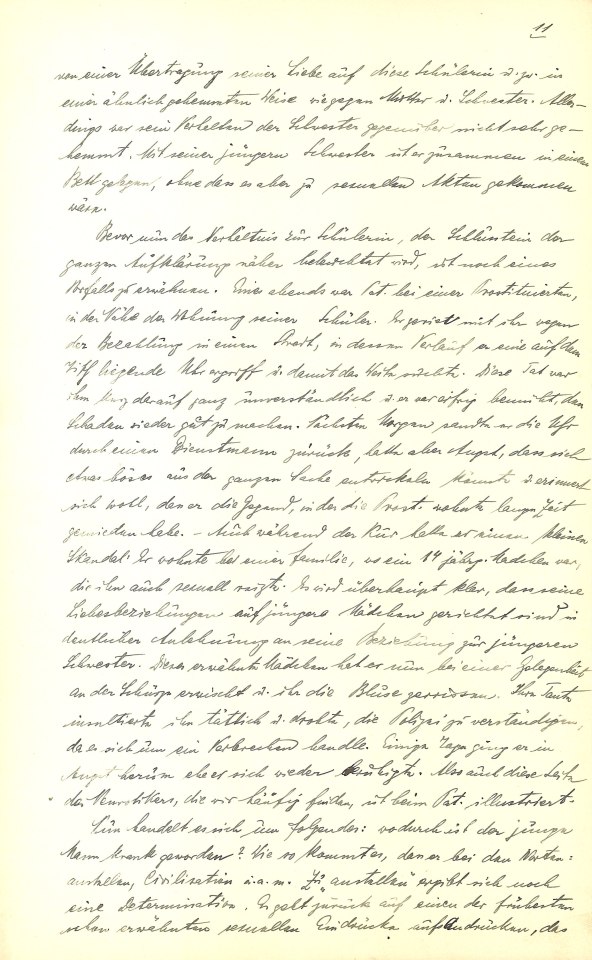 11
von einer Übertragung seiner Liebe auf diese Schülerin u. zw. in
einer ähnlich gehemmten Weise wie gegen Mutter u. Schwester. Aller-
dings war sein Verhalten der Schwester gegenüber nicht sehr ge-
hemmt. Mit seiner jüngern Schwester ist er zusammen in einem
Bett gelegen, ohne dass es aber zu sexuellen Akten gekommen
wäre.
Bevor nun das Verhältnis zur Schülerin, der Schlusstein der
ganzen Aufklärung näher beleuchtet wird, ist noch eines
Vorfalls zu erwähnen. Eines abends war Pat. bei einer Prostituierten,
in der Nähe der Wohnung seiner Schüler. Er geriet mit ihr wegen
der Bezahlung in einen Streit, in dessen Verlauf er eine auf dem
Tisch liegende Uhr ergriff u. damit das Weite suchte. Diese Tat war
ihm kurz darauf ganz unverständlich u. er war eifrig bemüht, den
Schaden wieder gut zu machen. Nächsten Morgen sandte er die Uhr
durch einen Dienstmann zurück, hatte aber Angst, dass sich
etwas böses aus der ganzen Sache entwickeln könnte u. erinnert
sich wohl, dass er die Gegend, in der die Prost. wohnte lange Zeit
gemieden habe. – Auch während der Kur hatte er einen kleinen
Skandal: Er wohnte bei einer Familie, wo ein 14 jährg. Mädchen war,
die ihn auch sexuell reizte. Es wird überhaupt klar, dass seine
Liebesbeziehungen auf jüngere Mädchen gerichtet sind in
deutlicher Anlehnung an seine Beziehung zur jüngeren
Schwester. Dieses erwähnte Mädchen hat er nun bei einer Gelegenheit
an der Schürze erwischt u. ihr die Bluse zerrissen. Ihre Tante
insultierte ihn tätlich u. drohte, die Polizei zu verständigen,
da es sich um ein Verbrechen handle. Einige Tage ging er in
Angst herum ehe er sich wieder beruhigte. Also auch diese Seite
des Neurotikers, die wir häufig finden, ist beim Pat. illustriert.
Nun handelt es sich um folgendes: wodurch ist der junge
Mann krank geworden? Wie so kommt es, dass er bei den Worten:
anstellen, Civilisation u.a.m. Zu „anstellen" ergibt sich noch
eine Determination. Es geht zurück auf einen der frühesten
schon erwähnten sexuellen Eindrücke auf Andrücken, das